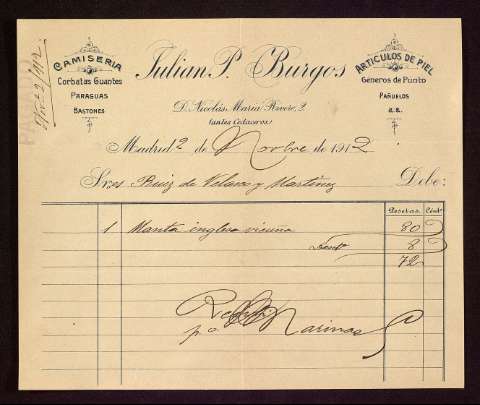 CAMISERIA
Corbatas Guantes
PARAGUAS
BASTONES
Julian P. Burgos
D. Nicolás María Rivero, 2
(antes Cedaceros)
ARTICULOS DE PIEL
Géneros de Punto
PAÑUELOS
&. &.
Madrid 2 de Novbre de 1912
Sres Ruiz de Velasco y Martinez Debe:
Pesetas. Cént.
1 Manta inglesa vicuña 80
8
72
Recibí
p.o. Marinas